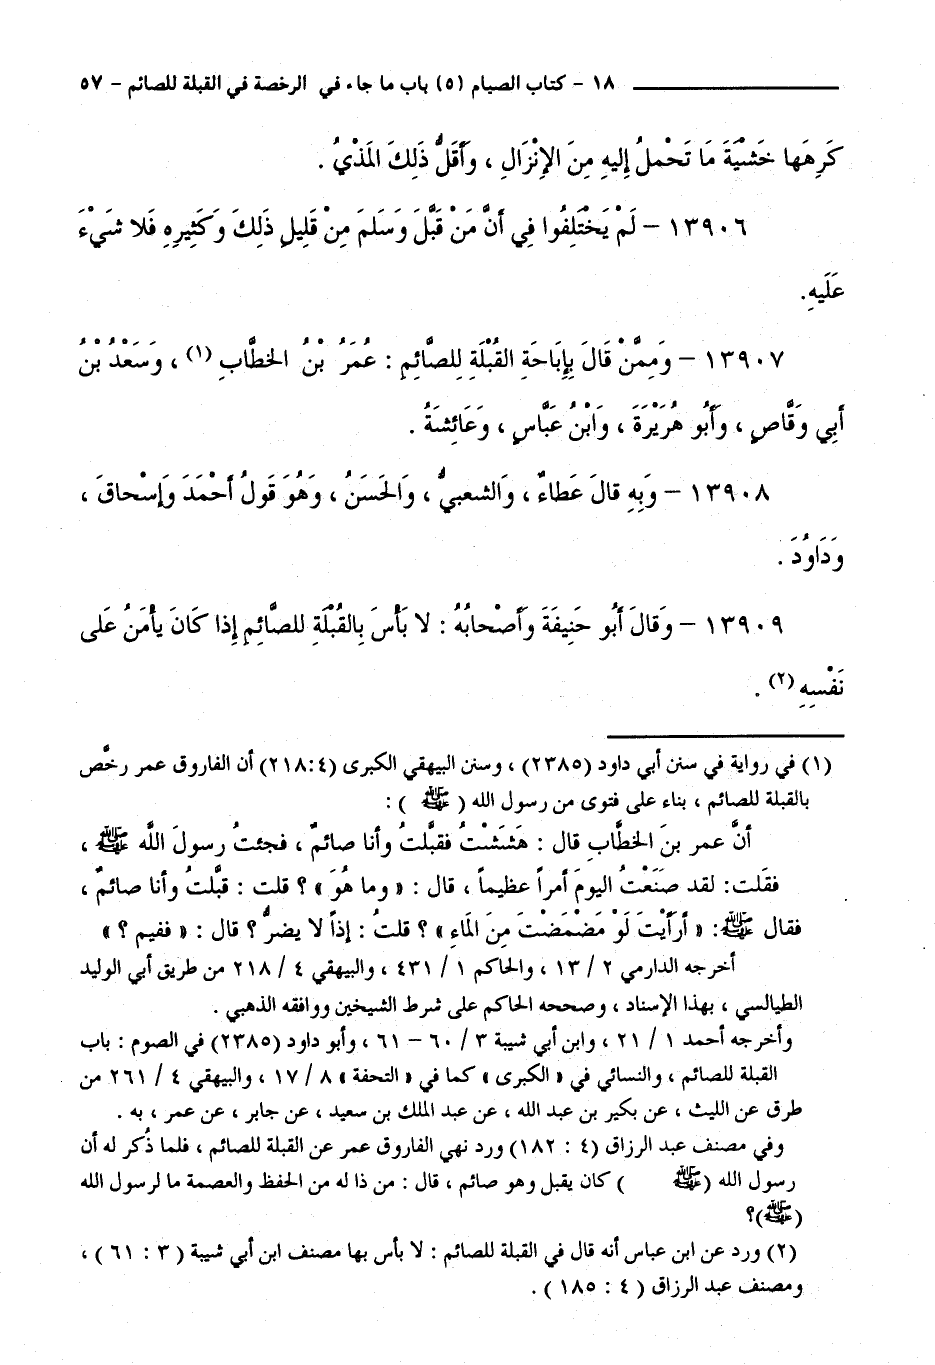 ١٨ - كتاب الصيام (٥) باب ما جاء في الرخصة في القبلة للصائم - ٥٧
كَرِهَها خَشْيَةَ مَا تَحْملُ إليهِ مِنَ الإنْزَالِ ، وأَقَلُّ ذَلِكَ المَذْيُ .
١٣٩٠٦ - لَمْ يَخْتَلِفُوا فِي أَنَّ مَنْ قَبَّلَ وَسَلَمَ مِنْ قَلِيلِ ذَلِكَ وَكَثِيرِهِ فَلا شَيْءَ
عَلَيهِ.
١٣٩٠٧ - وَمِمَّنْ قَالَ بِإِبَاحَةِ القُبْلَةِ لِلصَّائِمِ : عُمَرُ بْنُ الخطَّابِ (١) ، وَسَعْدُ بْنُ
أَبِي وَقَّاصٍ ، وَأَبُو هُرَيْرَةَ ، وَابْنُ عَبَّاسٍ ، وَعَائِشَةُ .
١٣٩٠٨ - وَبِهِ قالَ عَطاءٌ ، وَالشعبيُّ ، وَالحَسَنُ ، وَهُوَ قَولُ أَحْمَدَ وَإسْحاقَ ،
وَدَاوُدَ .
١٣٩٠٩ - وَقالَ أَبُو حَنِيفَةَ وَأَصْحابُهُ : لا بَأْسَ بِالقُبْلَةِ للصَّائِمِ إِذا كَانَ يأْمَنُ عَلى
نَفْسِهِ (٢) .
(١) في رواية في سنن أبي داود (٢٣٨٥) ، وسنن البيهقي الكبرى (٢١٨:٤) أن الفاروق عمر رخَّص
بالقبلة للصائم ، بناء على فتوى من رسول الله ( ﷺ ) :
أنَّ عمر بنَ الخطَّابِ قال : هَشَشْتُ فقبَّلتُ وأنا صائمٌ ، فجئتُ رسولَ اللَّه ﷺ ،
فقَلت: لقد صنَعْتُ اليومَ أمراً عظيماً ، قال : « وما هُوَ » ؟ قلت : قبَّلتُ وأنا صائمٌ ،
فقال ﷺ: « أرأَيْتَ لَوْ مَضْمَضْتَ مِنَ المَاءِ » ؟ قلتُ : إذاً لا يضرُّ ؟ قال : « ففيم ؟ »
أخرجه الدارمي ٢ / ١٣ ، والحاكم ١ / ٤٣١ ، والبيهقي ٤ / ٢١٨ من طريق أبي الوليد
الطيالسي ، بهذا الإسناد ، وصححه الحاكم على شرط الشيخين ووافقه الذهبي .
وأخرجه أحمد ١ / ٢١ ، وابن أبي شيبة ٣ / ٦٠ - ٦١ ، وأبو داود (٢٣٨٥) في الصوم : باب
القبلة للصائم ، والنسائي في « الكبرى » كما في « التحفة » ٨ / ١٧ ، والبيهقي ٤ / ٢٦١ من
طرق عن الليث ، عن بكير بن عبد الله ، عن عبد الملك بن سعيد ، عن جابر ، عن عمر ، به .
وفي مصنف عبد الرزاق (٤ : ١٨٢) ورد نهي الفاروق عمر عن القبلة للصائم ، فلما ذُكر له أن
رسول الله (ﷺ ) كان يقبل وهو صائم ، قال : من ذا له من الحفظ والعصمة ما لرسول الله
(ﷺ)؟
(٢) ورد عن ابن عباس أنه قال في القبلة للصائم : لا بأس بها مصنف ابن أبي شيبة ( ٣ : ٦١ ) ،
ومصنف عبد الرزاق ( ٤ : ١٨٥ ) .